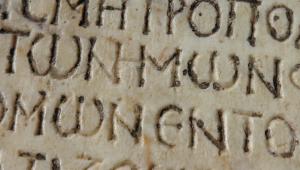 ϹΜΗΤΡΟΠΟ
ΤΩΝΗΜΩΝ
ΟΜΩΝΕΝΤΟ